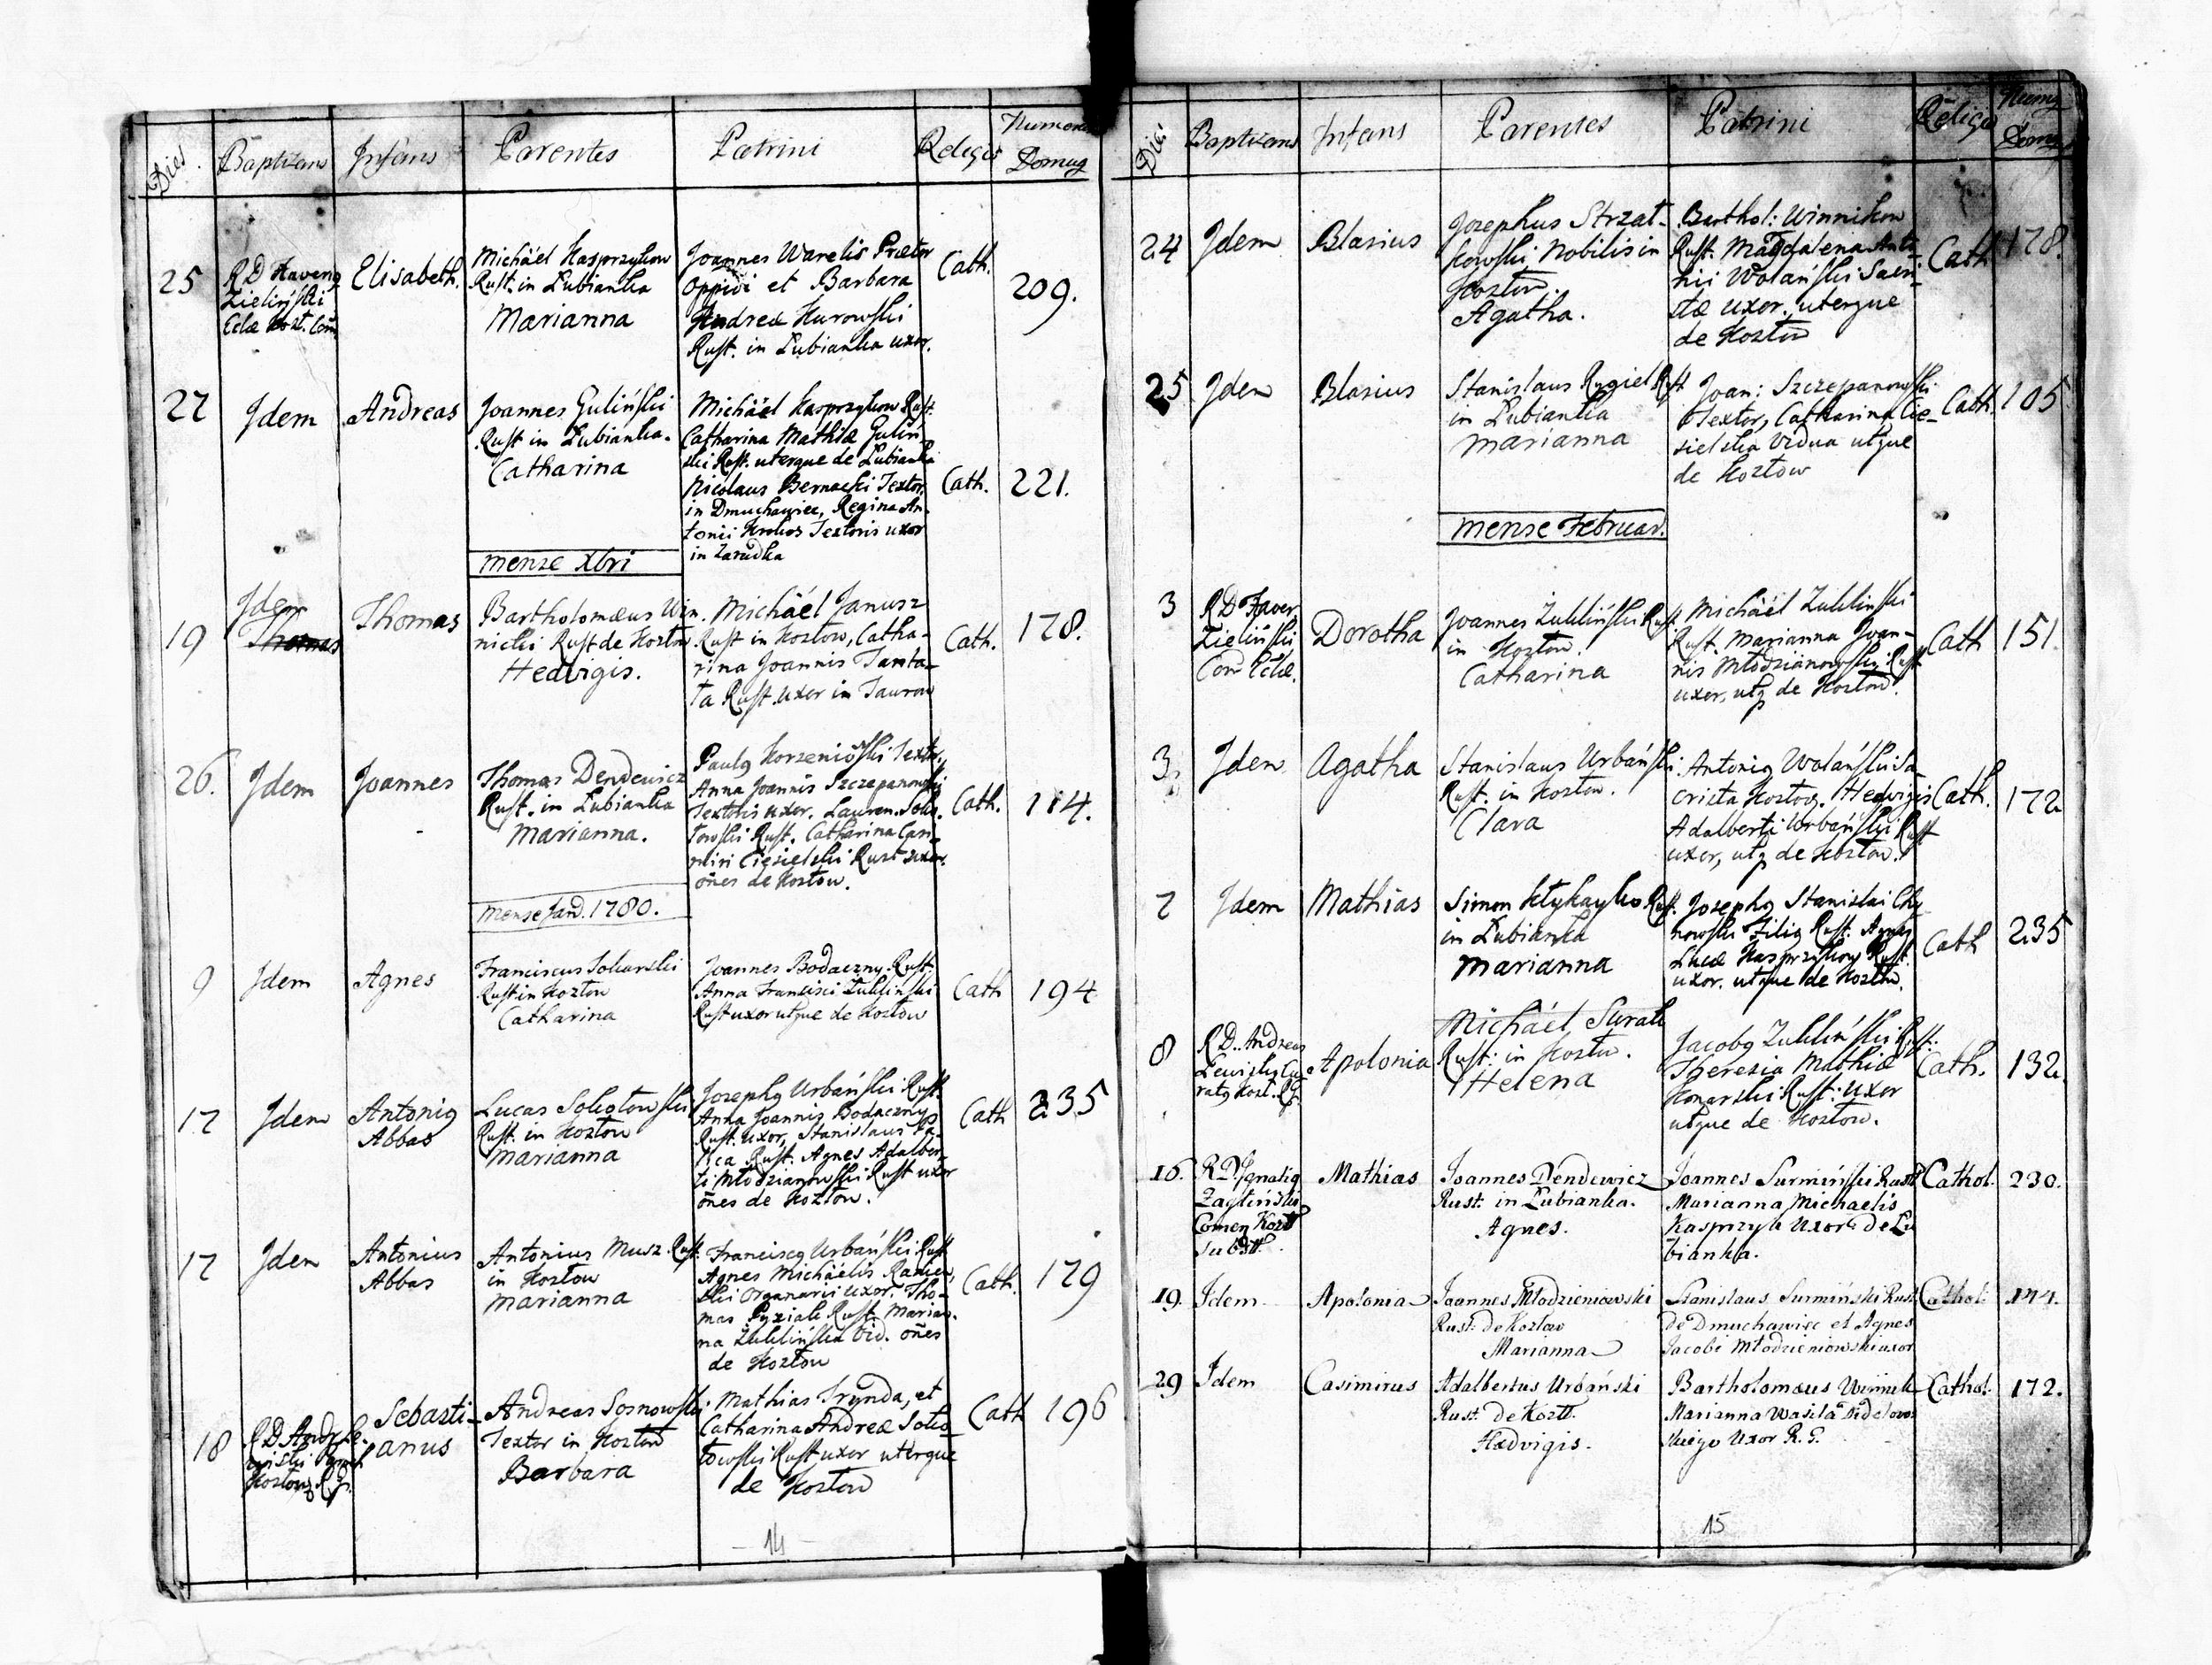 Dies Baptizans Infans Parentes Patrini Religio Numerus Domus
25 R D Xaverius Zieliński Ecclae Kozt. Com Elisabeth. Michäel Kasprzykow
Rust. in Lubianka
Marianna
Joannes Warelis Prætor
Oppidi et Barbara
Andreæ Kurowski
Rust. in Lubianka uxor.
Cath. 209.
27 Idem Andreas Joannes Guliński
Rust in Lubianka.
Catharina
Michäel Kasprzykow Rust.
Catharina Mathiæ Guliń
ski Rust. uterque de Lubianka
Nicolaus Bernacki Textor
in Dmuchawiec, Regina An
tonii Krokos Textoris uxor
in Zarudka
Cath. 221.
Mense Xbri
19 Idem
Thomas
Thomas
Bartholomæus Win
nicki Rust de Koztow
Hedvigis.
Michäel Janusz
Rust in Koztow, Catha-
rina Joannis Tanta-
ta Rust. uxor in Taurow
Cath. 178.
26. Idem Joannes Thomas Dendewicz
Rust. in Lubianka
Marianna.
Paulg Korzeniowski Textor,
Anna Joannis Szczepanowski
Textoris uxor. Lauren. Soko
towski Rust. Catharina Casi
miri Ciesielski Rust uxor.
oñes de Koztow.
Cath. 114.
Mense Jano. 1780.
9 Idem Agnes Franciscus Sokurski
Rust in Koztow
Catharina
Joannes Bodaczny. Rust.
Anna Francisci Zukliński
Rust uxor utque de Koztow
Cath 194
17 Idem Antonig
Abbas
Lucas Sokotowski
Rust. in Koztow
Marianna
Josephg Urbański Rust.
Anna Joannis Bodaczny
Rust. uxor, Stanislaus
Rust: Agnes Adalber-
ti Młodzianowski Rust uxor
oñes de Koztow.
Cath 235
17 Idem Antonius
Abbas
Antonius Musz. Rust.
in Koztow
Marianna
Franciscg Urbański Rust
Agnes Michäelis
Organarii uxor. Tho-
mas Rust. Marian.
na Zuklińska Vid. oñes
de Koztow
Cath. 179
18 R D Andr.
Koztow
Sebasti-
anus
Andreas Sosnowski
Textor in Koztow
Barbara
Mathias Trynda, et
Catharina Andreæ Soko
towski Rust uxor uterque
de Koztow
Cath 196
14
Dies Baptizans Infans Parentes Patrini Religio Numg Domg
24 Idem Blasius Josephus Strzat-
kowski Nobilis in
Koztow.
Agatha.
Barthol: Winnikow
Rust. Magdalena Anto
nii Wolański Sacri-
stæ uxor. uterque
de Koztow
Cath 178.
25 Idem Blasius Stanislaus Rygiel Rust
in Lubianka
Marianna
Joan: Szczepanowski
Textor, Catharina Cie-
sielska Vidua utque
de Koztow
Cath. 105
Mense Februar.
3 R D Xaver
Zieliński
Com Eclæ.
Dorotha Joannes Zukliński Rust
in Koztow.
Catharina
Michäel Zuklinski
Rust. Marianna Joan-
nis Młodzianowski Rust
uxor, utq de Koztow.
Cath 151
3 Idem Agatha Stanislaus Urbański
Rust. in Koztow.
Clara
Antonig Wolański Sa
crista Koztov. Hedvigis
Adalberti Urbański Rust
uxor, utq de Koztow.
Cath. 172
7 Idem Mathias Simon Rust.
in Lubianka
Marianna
Josephg Stanislai
Filig Rust. Agnes
Lucæ Kasprzykow Rust.
uxor. utque de Koztow.
Cath 235
8 R D. Andreas
Lewicky Cu
ratg Kozt. R.G.
Apolonia Michäel Surak
Rust: in Koztow.
Helena
Jacobg Zukliński Rust:
Theresia Mathiæ
Konarski Rust: uxor
utque de Koztow.
Cath. 132
16. R D Ignatig
Comen Kozt
Subst.
Mathias Joannes Dendewicz
Rust. in Lubianka.
Agnes.
Joannes Surmiński Rust
Marianna Michaelis
Kasprzyk Uxor de Lu
bianka.
Cathol. 230.
19. Idem Apolonia Joannes Młodzieniowski
Rust: de Koztow
Marianna
Stanislaus Surmiński Rust
de Dmuchawiec et Agnes
Jacobi Młodzieniowski uxor
Cathol. 144.
29 Idem Casimirus Adalbertus Urbański
Rust. de Kozt.
Hædvigis.
Bartholomæus Winnik
Marianna
Uxor R. G.
Cathol. 172.
15